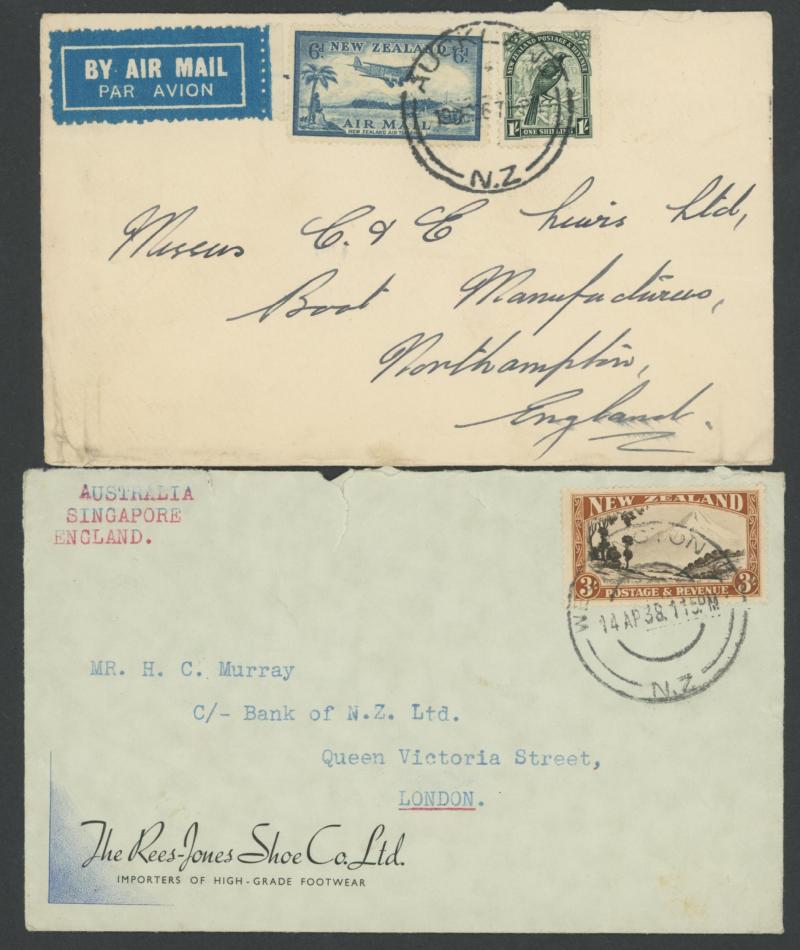 BY AIR MAIL
PAR AVION
6d NEW ZEALAND 6d
AIR MAIL
NEW ZEALAND POSTAGE & REVENUE
1/- ONE SHILLING 1/-
N.Z.
Messrs C. & E Lewis Ltd,
Boot Manufacturers,
Northampton,
England.
AUSTRALIA
SINGAPORE
ENGLAND.
NEW ZEALAND
3/- POSTAGE & REVENUE 3/-
14 AP 38. 1 15 PM
N.Z.
MR. H. C. Murray
C/- Bank of N.Z. Ltd.
Queen Victoria Street,
LONDON.
The Rees-Jones Shoe Co. Ltd.
IMPORTERS OF HIGH-GRADE FOOTWEAR